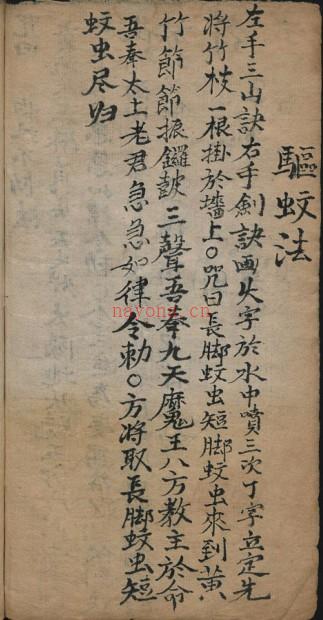 驅蚊法
左手三山訣右手劍訣画火字於水中噴三次丁字立定先
將竹枝一根掛於墻上〇咒曰長脚蚊虫短脚蚊虫來到黄
竹節節振鑼皷三聲吾奉九天魔王八方教主於命
吾奉太上老君急急如律令勅〇方將取長脚蚊虫短
蚊虫尽归
nayona.cn